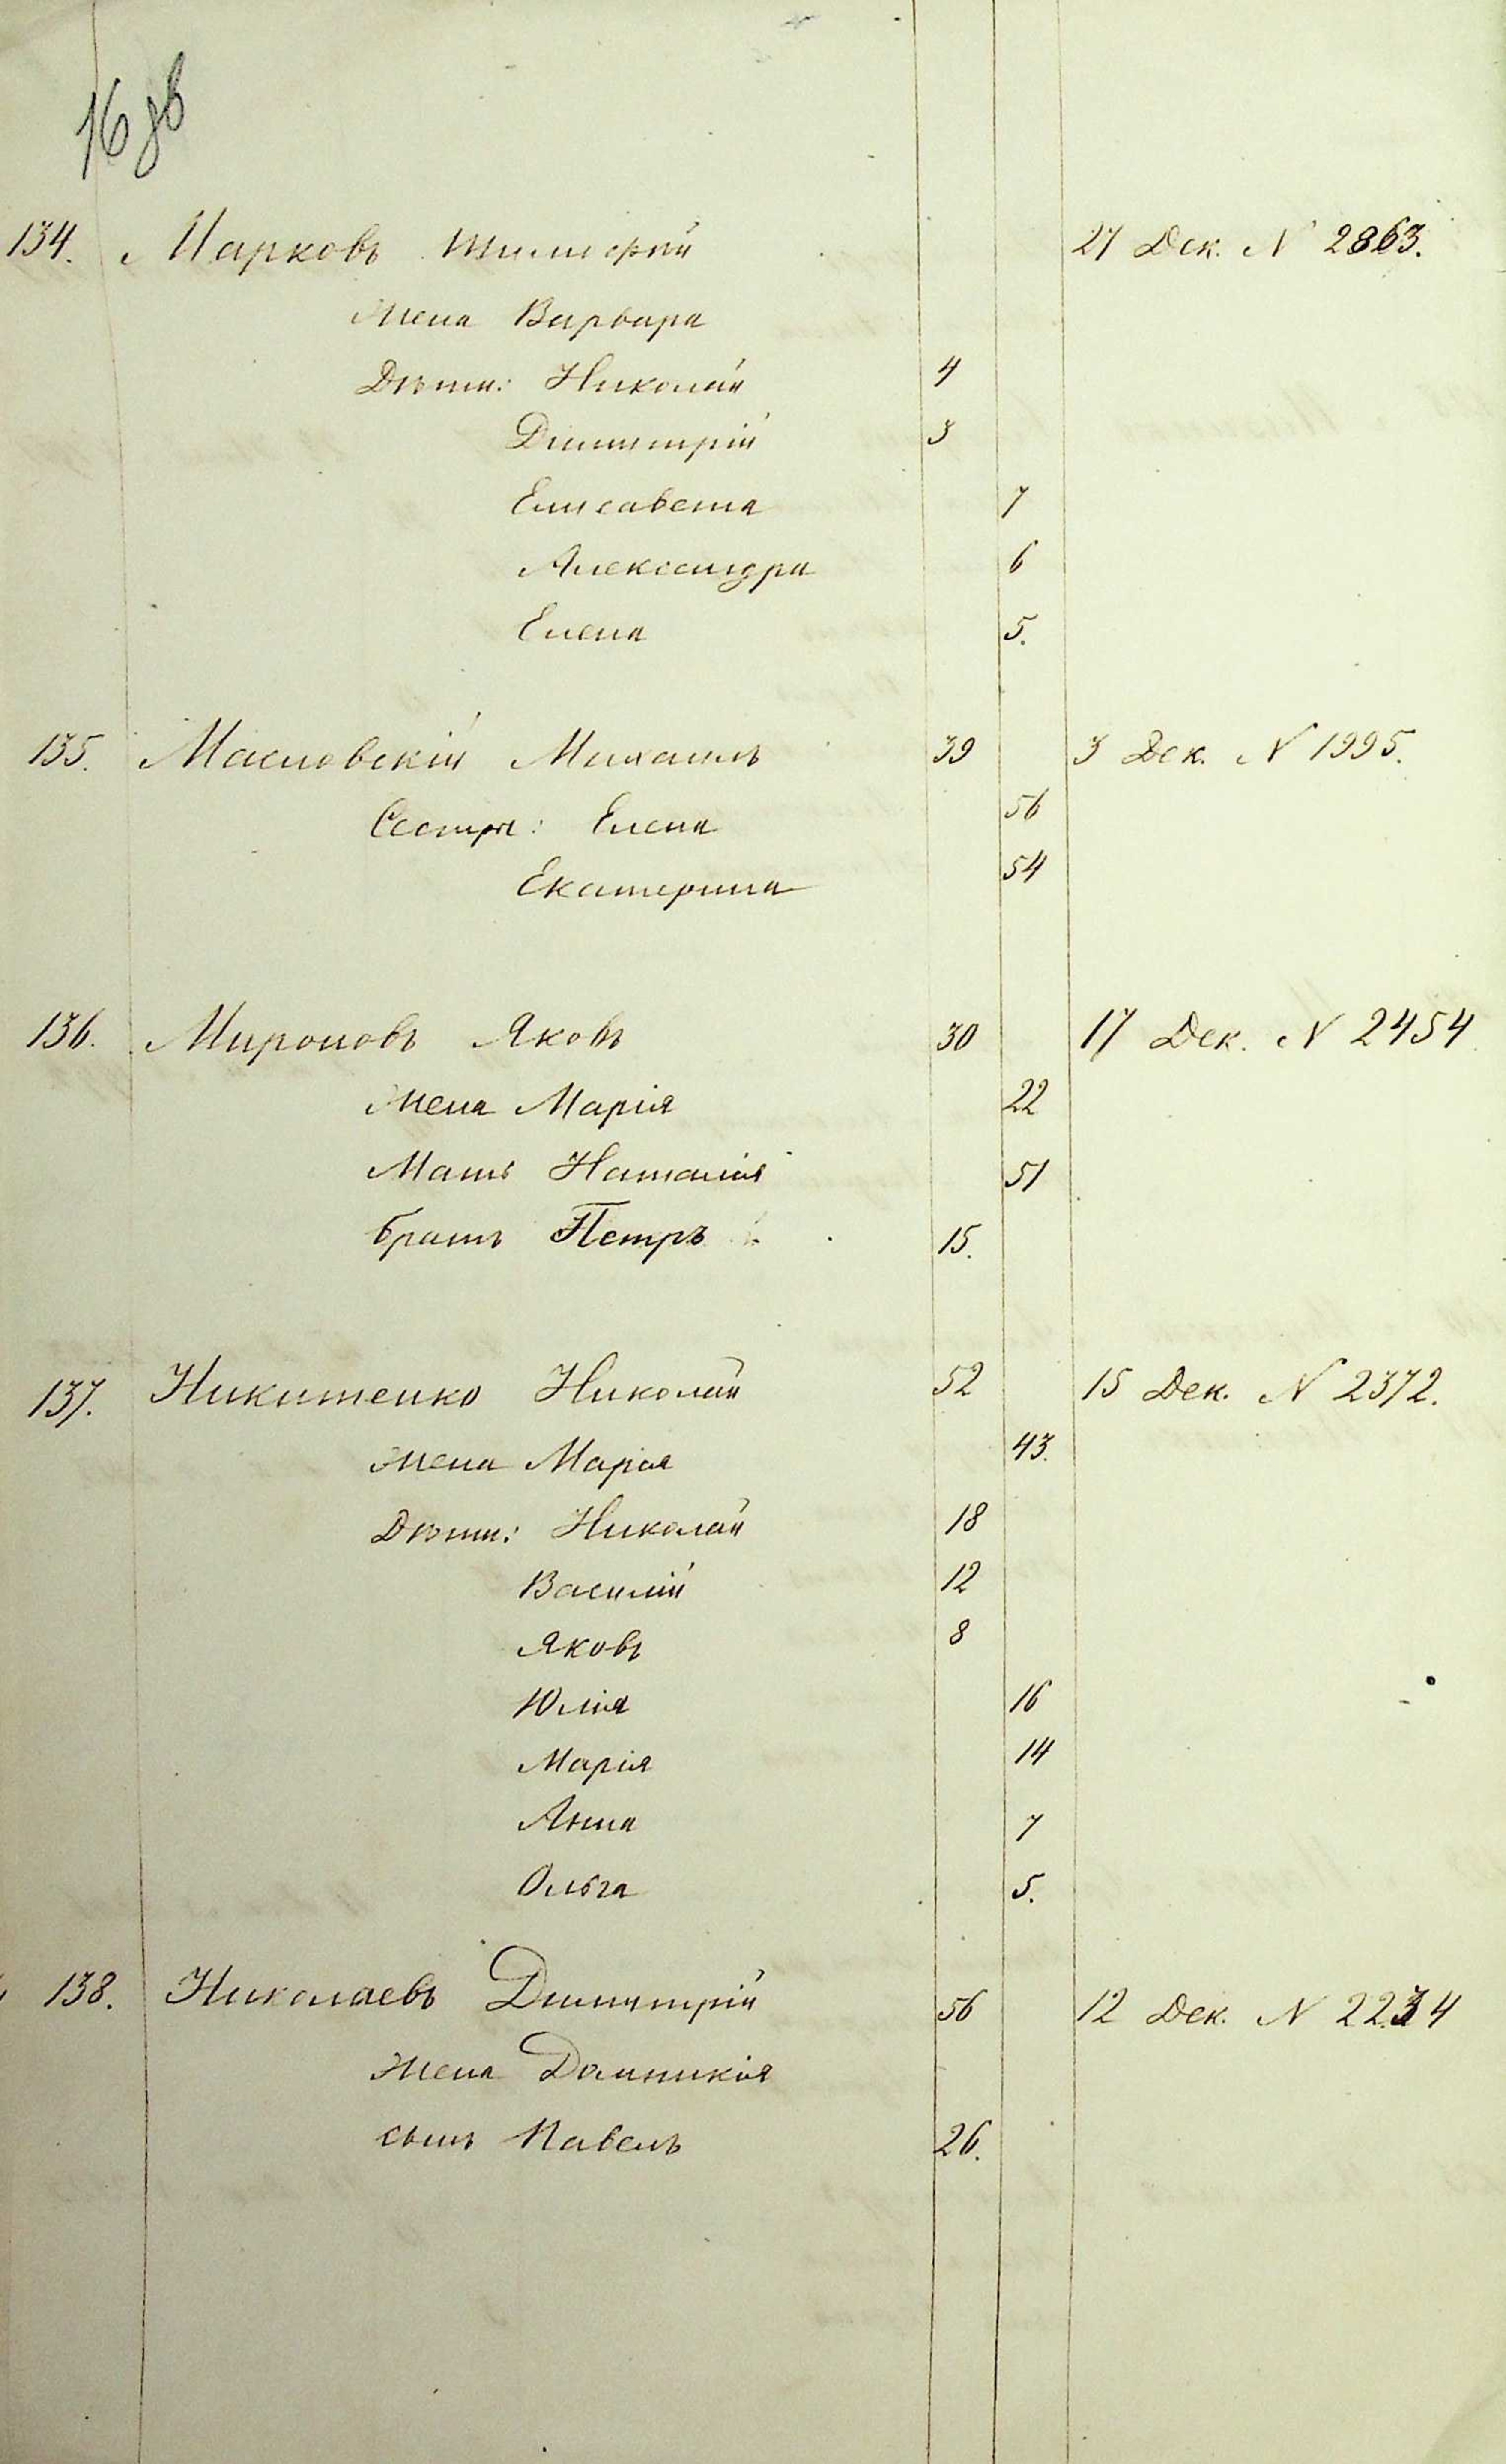 134. Марковъ Тимофей 27 Дек. N 2863.
Жена Варвара
Дѣти: Николай 4
Димитрій 3
Елисавета 7
Александра 6
Елена 5.
135. Масловскій Михаилъ 39 3 Дек. N 1995.
Сестры: Елена 56
Екатерина 54
136. Мироновъ Яковъ 30 17 Дек. N 2454
Жена Марія 22
Мать Наталія 51
братъ Петръ 15.
137. Никитенко Николай 52 15 Дек. N 2372.
Жена Марія 43.
Дѣти: Николай 18
Василій 12
Яковъ 8
Юлія 16
Марія 14
Анна 7
Ольга 5.
138. Николаевъ Димитрій 56 12 Дек. N 2234
Жена Домникія
сынъ Павелъ 26.